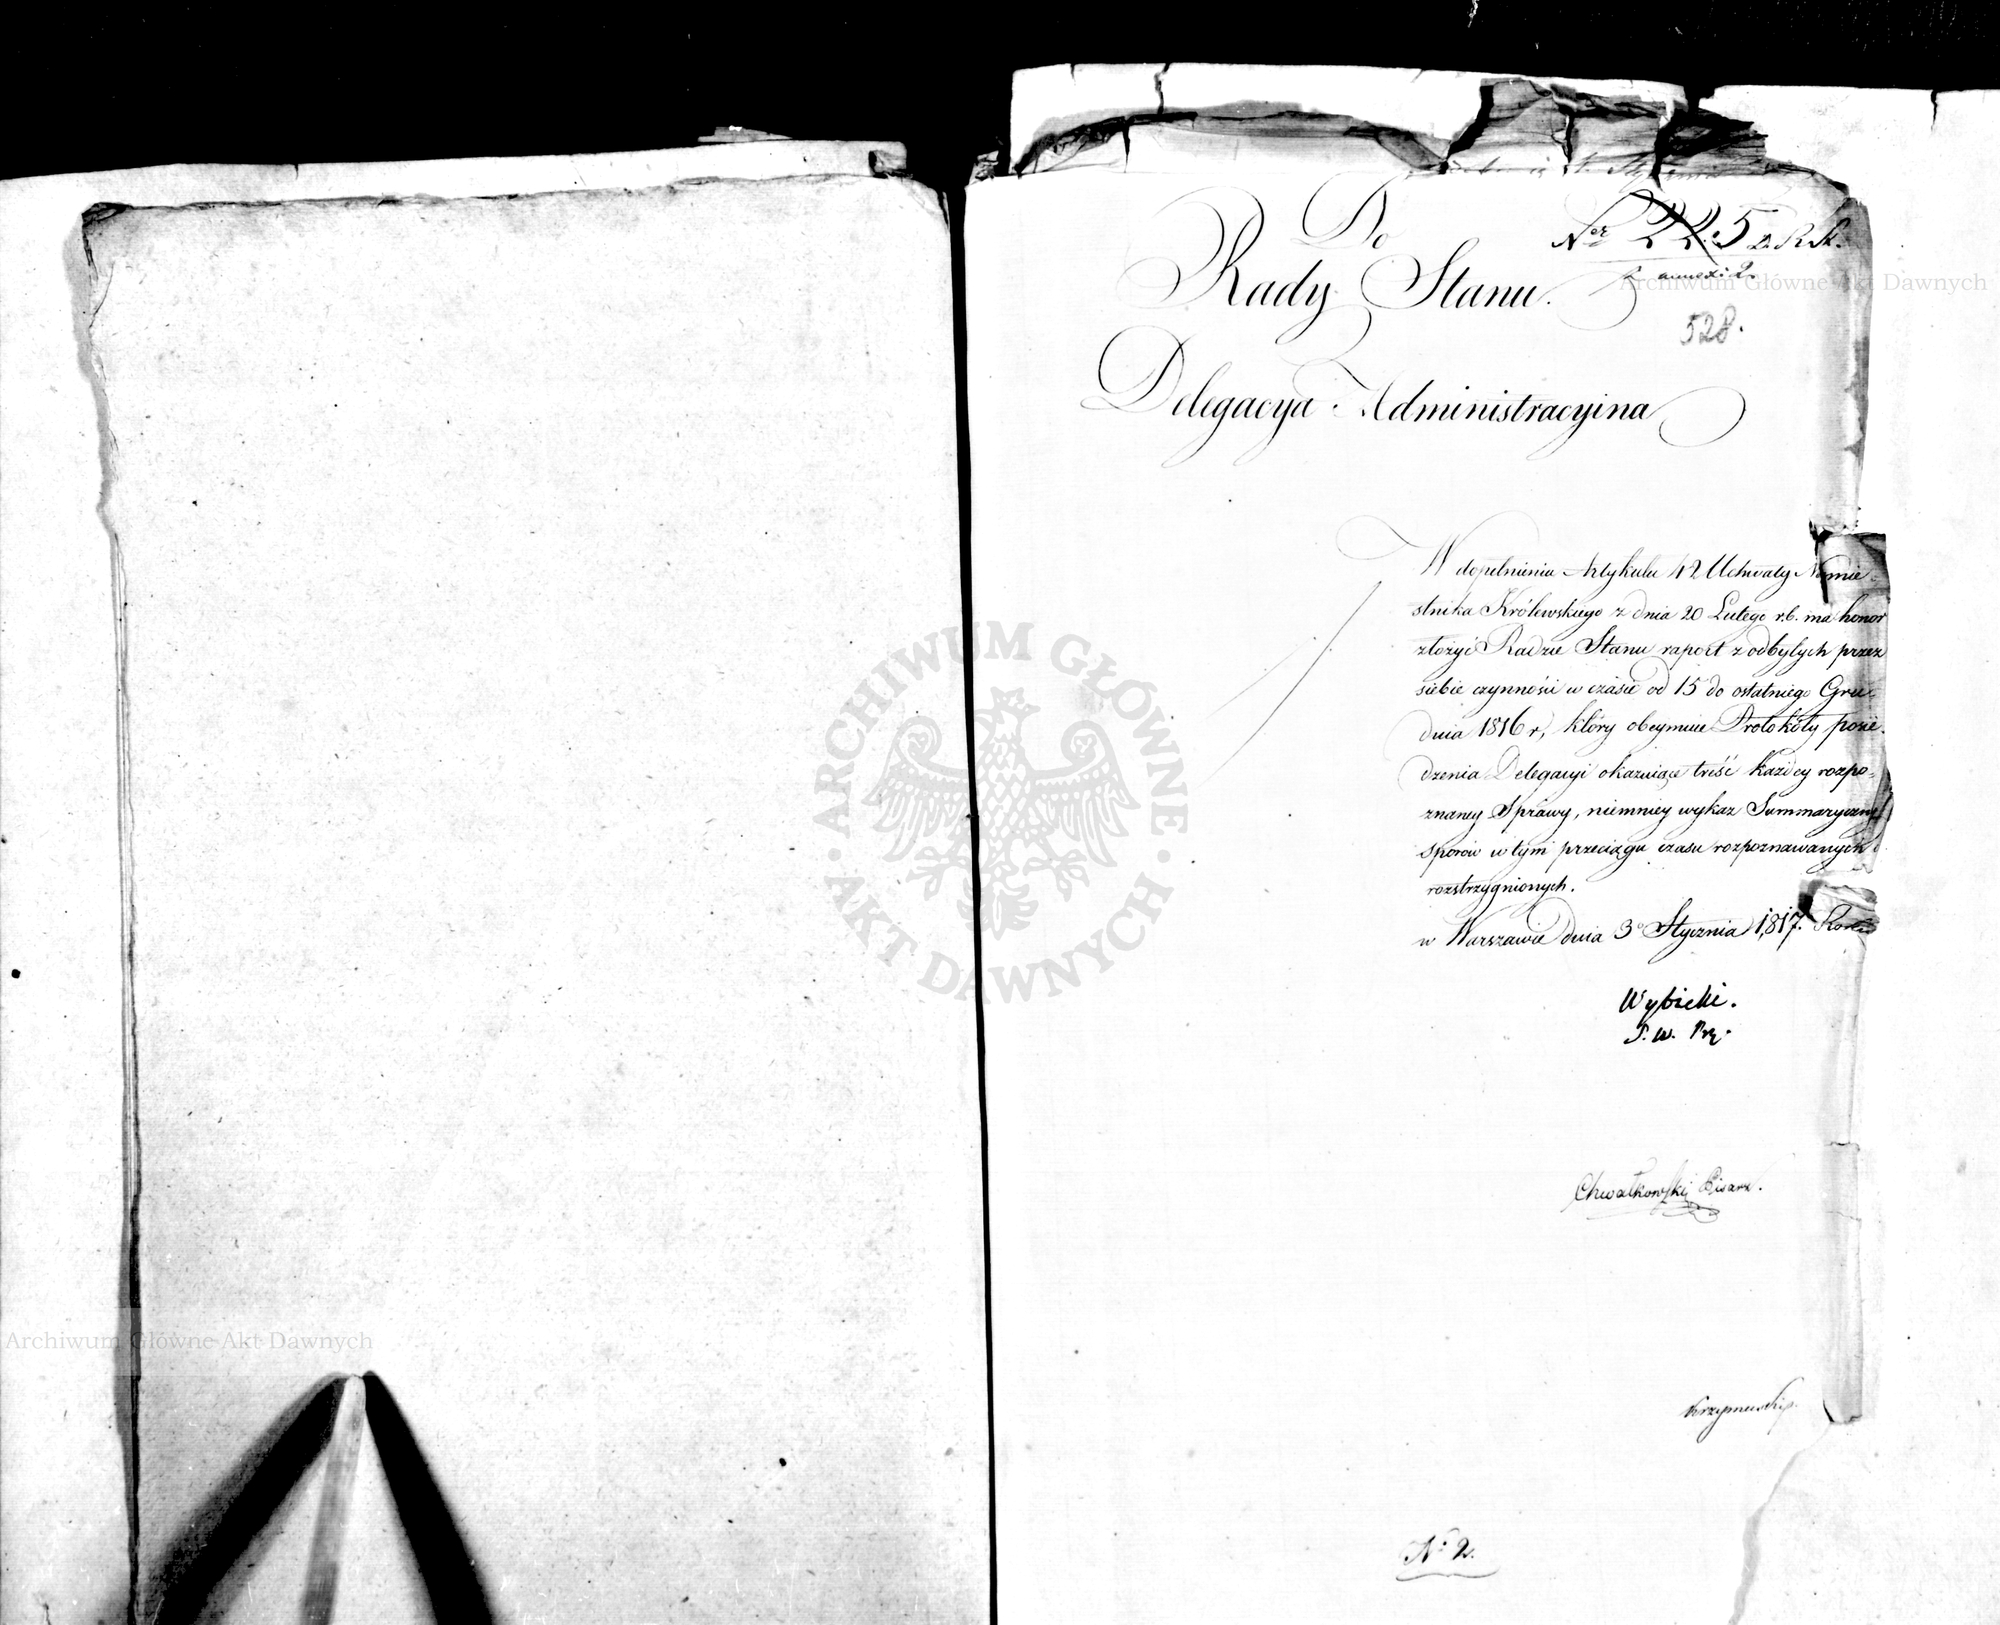 Do
Rady Stanu.
Ner 225 D. R. St.
annexi: 2.
528.
Delegacya Administracyina
W dopełnieniu Artykułu 42 Uchwały Namie-
stnika Królewskiego z dnia 20 Lutego r.b. ma honor
złożyć Radzie Stanu raport z odbytych przez
siebie czynności w czasie od 15 do ostatniego Gru-
dnia 1816 r, który obeymuie Protokóły posie-
dzenia Delegacyi okazuiące treść każdey rozpo-
znaney Sprawy, niemniey wykaz Summaryczny
sporów w tym przeciągu czasu rozpoznawanych i
rozstrzygnionych.
w Warszawie dnia 3o Stycznia 1817. Roku
Wybicki.
S. W. Prz.
Chwałkowski Pisarz.
No 2.
ARCHIWUM GŁÓWNE
AKT DAWNYCH
Archiwum Główne Akt Dawnych
Archiwum Główne Akt Dawnych